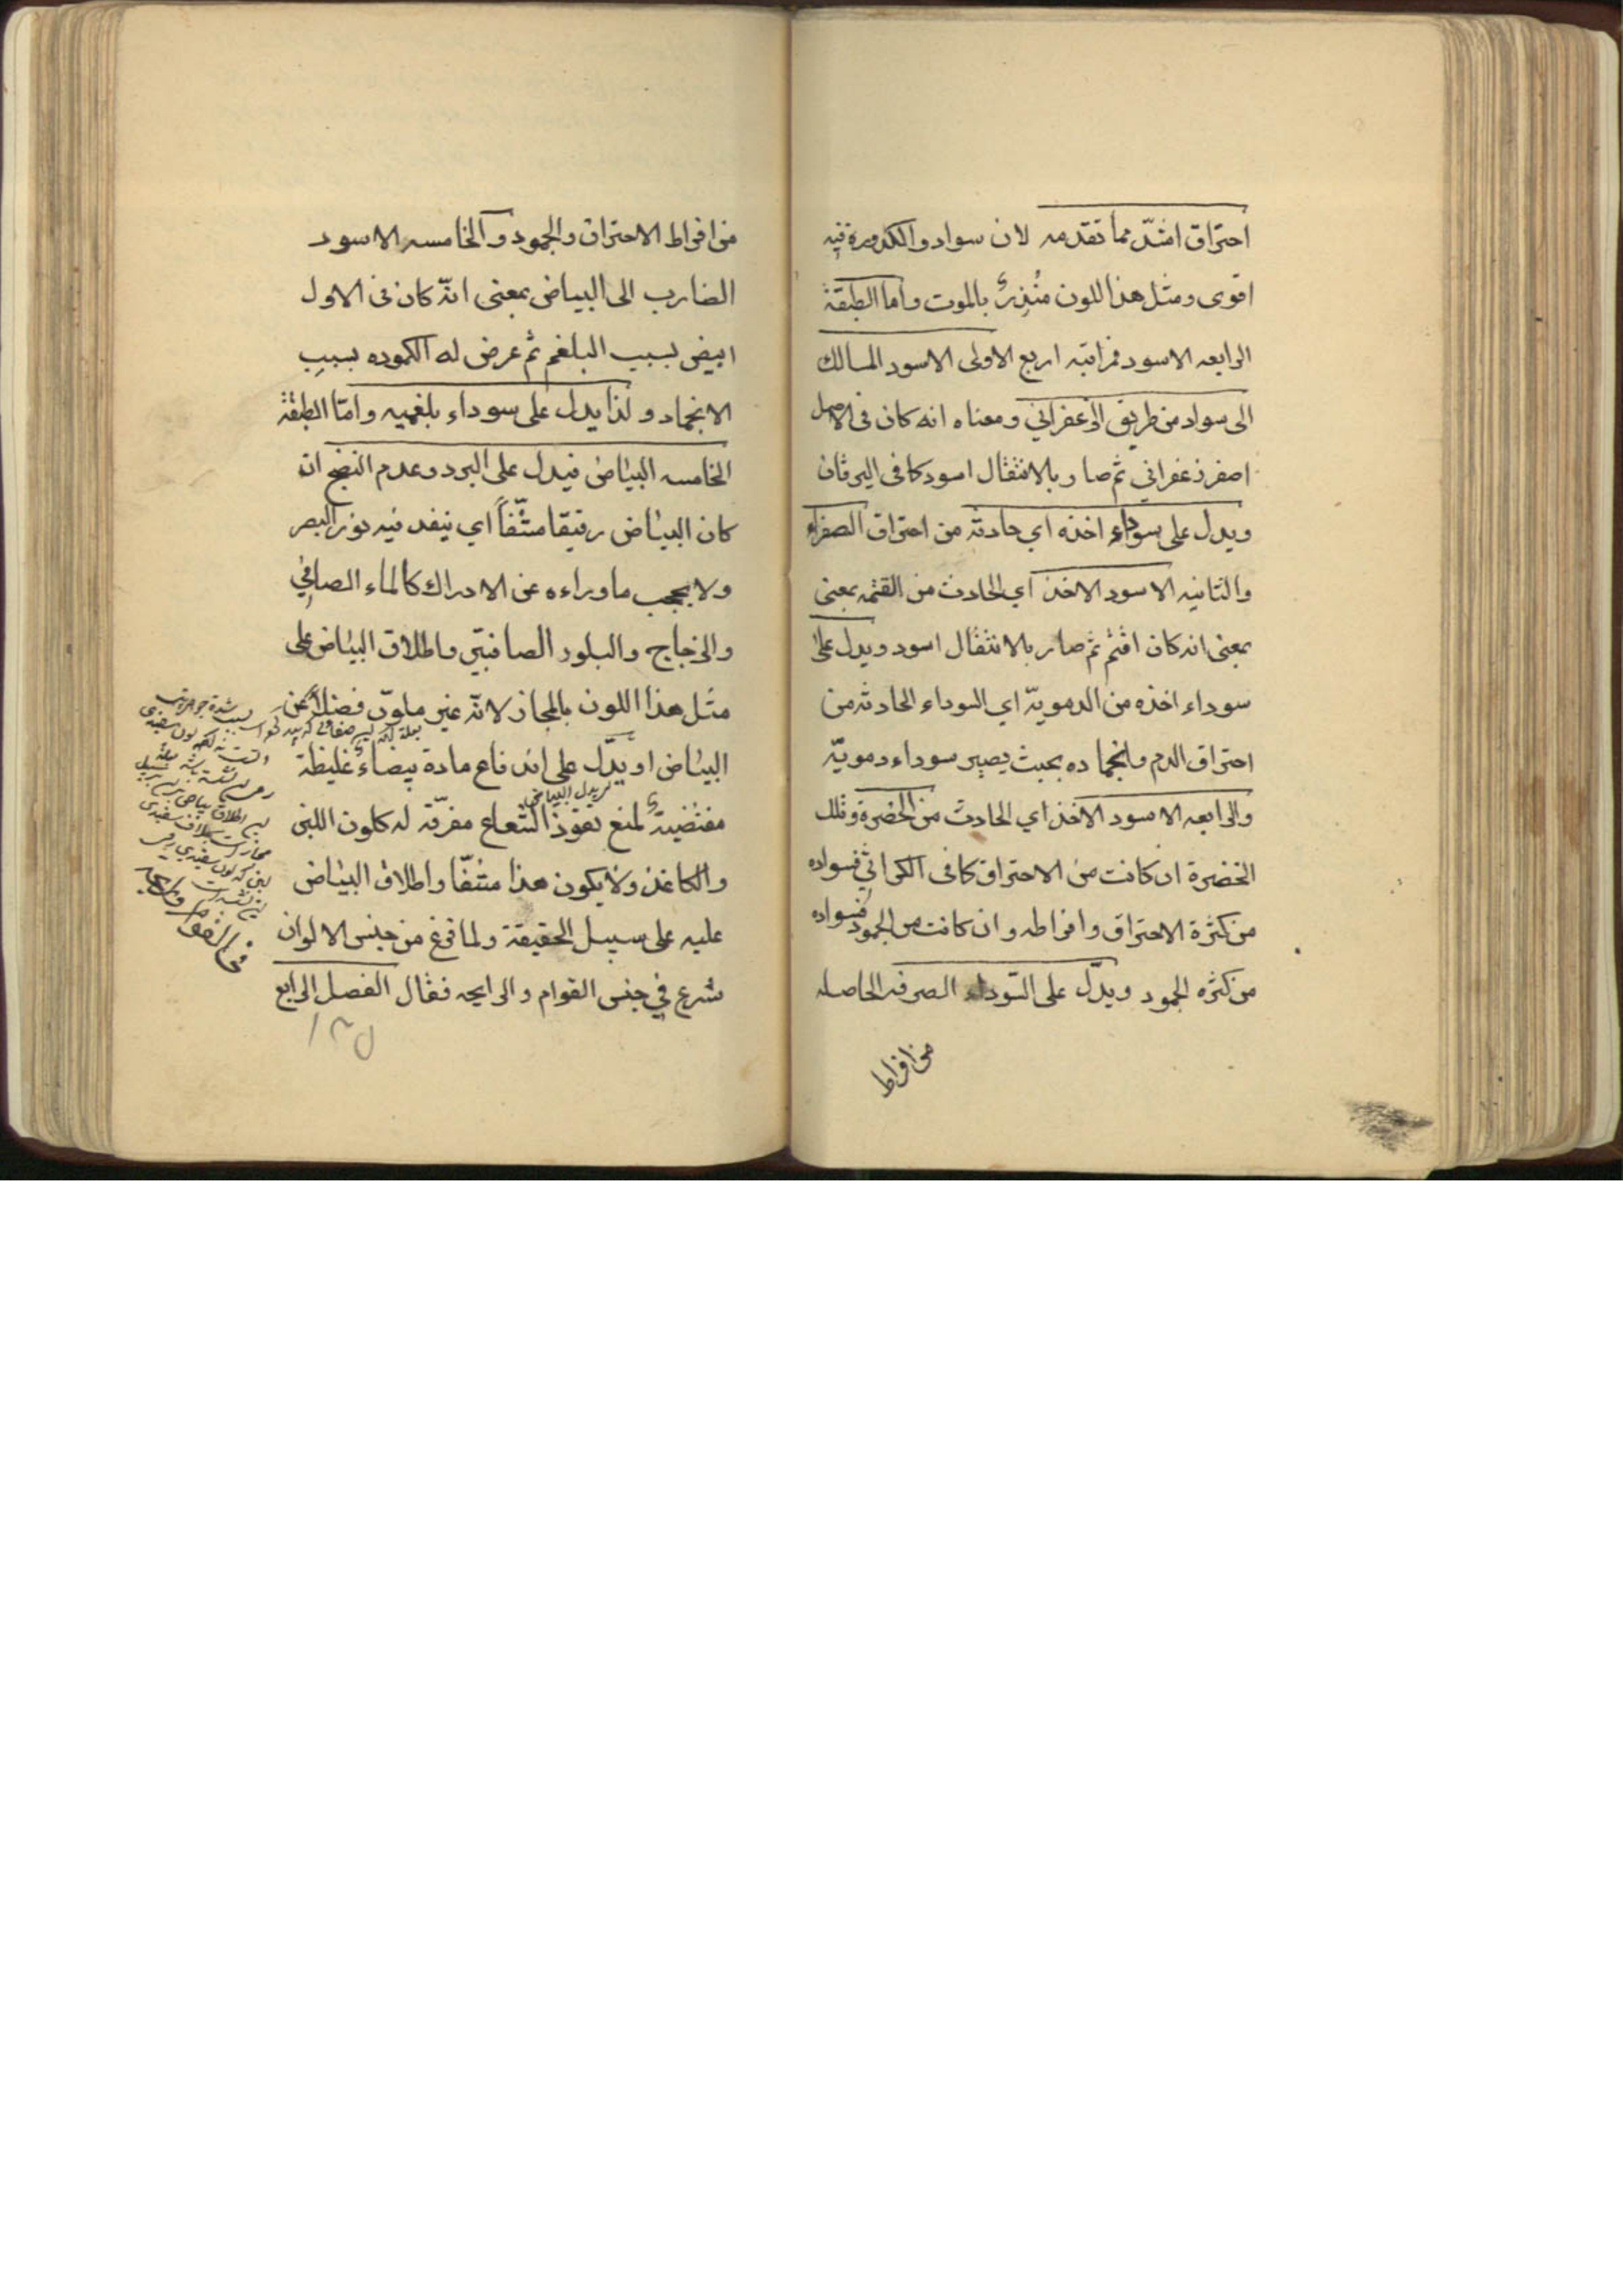 احتراق اشدّ مما تقدمه لان سواد والكدورة فيه
اقوى ومثل هذا اللون مُنذِرٌ بالموت واما الطبقة
الرابعه الاسود فمراتبه اربع الاولى الاسود السالك
الى سواد من طريق الزعفراني ومعناه انه كان فى الاصل
اصفر زعفراني ثم صار بالانتقال اسود كما فى اليرقان
ويدل على سوداء اخذه اي حادثه من احتراق الصفراء
والثانيه الاسود الاخذ اي الحادث من القتمه بمعنى
بمعنى انه كان اقتم ثم صار بالانتقال اسود ويدل على
سوداء اخذه من الدمويّة اي السوداء الحادثه من
احتراق الدم وانجماده بحيث يصير سوداء دمويّة
والرابعه الاسود الاخذ اي الحادث من الخضرة وتلك
الخضرة ان كانت من الاحتراق كما فى الكراثي فسواده
من كثرة الاحتراق وافراطه وان كانت من الجمود فسواده
من كثره الجمود ويدلّ على السّوداء الصرفه الحاصله
من افراط
من افراط الاحتراق والجمود والخامسه الاسود
الضارب الى البياض بمعنى انّه كان فى الاول
ابيض بسبب البلغم ثم عرض له الكموده بسبب
الانجماد ولذا يدل على سوداء بلغميه وامّا الطبقة
الخامسه البياض فيدل على البرد وعدم النضج ان
كان البياض رقيقا مشّفاً اي ينفد فيه نور البصر
ولا يحجب ما وراءه عن الادراك كالماء الصافي
والزجاج والبلور الصافيين واطلاق البياض على
مثل هذا اللون بالمجاز لانّه غير ملوّن فضلاً عن
البياض او يدّل على اندفاع مادة بيضاء غليظة
لو يدل البياض
مقتضية لمنع نفوذ الشعاع مفرّقه له كلون اللبن
والكاغذ ولا يكون هذا مشفّا واطلاق البياض
عليه على سبيل الحقيقة ولما فرغ من جنس الالوان
شرع في جنس القوام والرايحه فقال الفصل الرابع
في القوام والرايحه